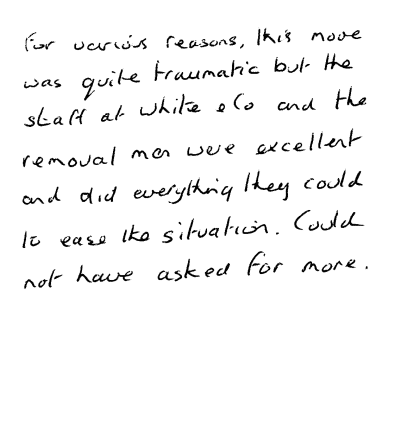 For various reasons, this move
was quite traumatic but the
staff at White & Co and the
removal men were excellent
and did everything they could
to ease the situation. Could
not have asked for more.